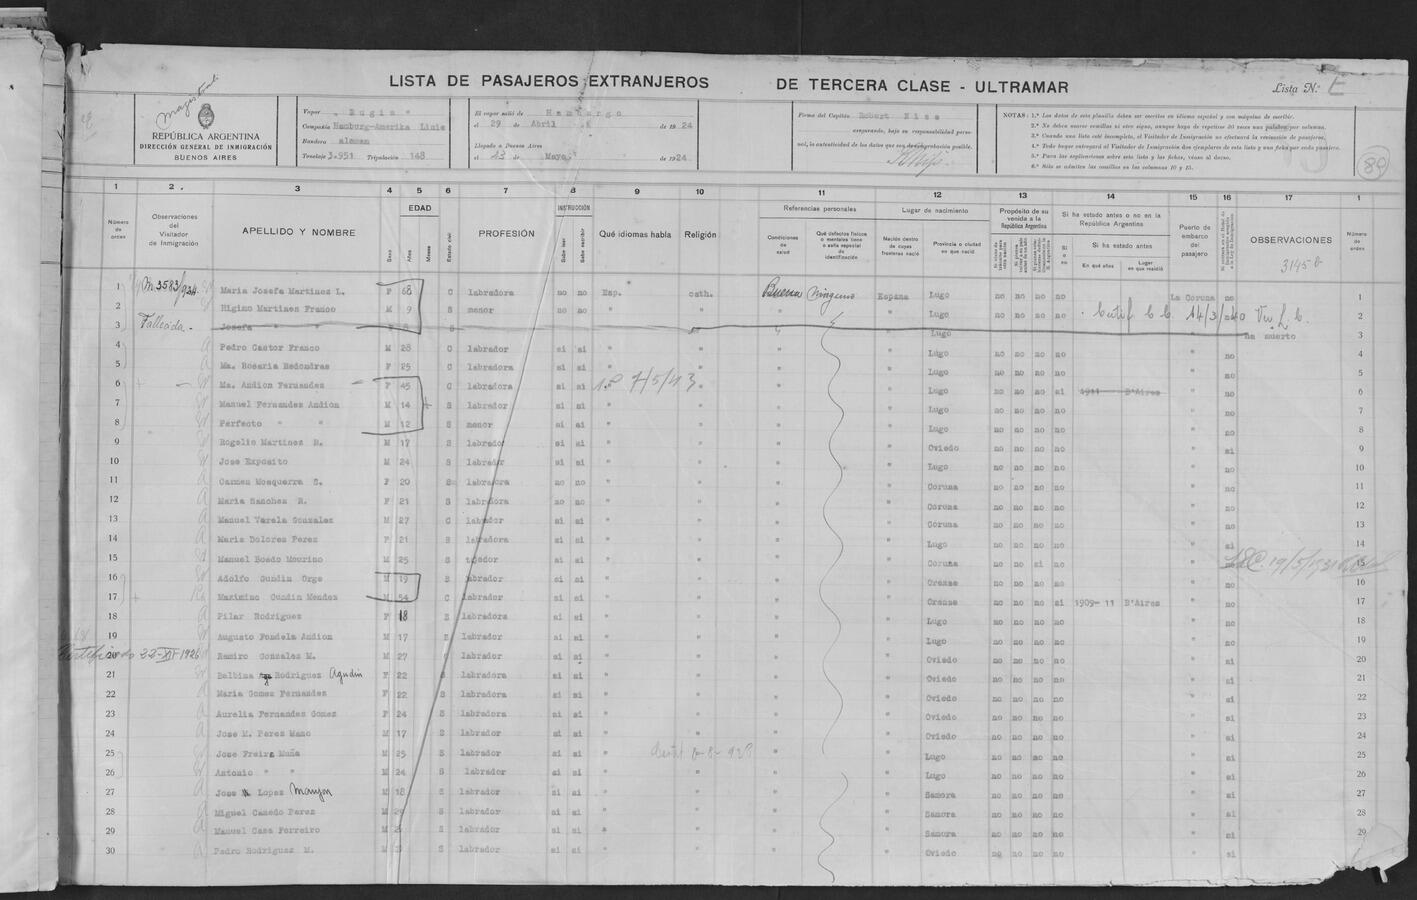 LISTA DE PASAJEROS EXTRANJEROS DE TERCERA CLASE - ULTRAMAR Lista N.º E
REPÚBLICA ARGENTINA
DIRECCIÓN GENERAL DE INMIGRACIÓN
BUENOS AIRES
Vapor "Rugia"
Compañía Hamburg-Amerika Linie
Bandera alemana
Tonelaje 3.951 Tripulación 148
El vapor salió de Hamburgo
el 29 de Abril de 1924
Llegado a Buenos Aires
el de Mayo de 1924
Firma del Capitán Robert
asegurando, bajo su responsabilidad perso-
nal, la autenticidad de los datos que son de comprobación posible.
NOTAS: 1.ª Los datos de esta planilla deben ser escritos en idioma español y con máquina de escribir.
2.ª No deben usarse comillas ni otro signo, aunque haya de repetirse 20 veces una palabra por columna.
3.ª Cuando una lista esté incompleta, el Visitador de Inmigración no efectuará la revisación de pasajeros.
4.ª Todo buque entregará al Visitador de Inmigración dos ejemplares de esta lista y una ficha por cada pasajero.
5.ª Para las explicaciones sobre esta lista y las fichas, véase al dorso.
6.ª Sólo se admiten las comillas en las columnas 10 y 15.
89
1 2 3 4 5 6 7 8 9 10 11 12 13 14 15 16 17 1
Número de orden
Observaciones del Visitador de Inmigración
APELLIDO Y NOMBRE
Sexo
EDAD
Años
Meses
Estado civil
PROFESIÓN
INSTRUCCIÓN
Sabe leer
Sabe escribir
Qué idiomas habla
Religión
Referencias personales
Condiciones de salud
Qué defectos físicos o mentales tiene o seña especial de identificación
Lugar de nacimiento
Nación dentro de cuyas fronteras nació
Provincia o ciudad en que nació
Propósito de su venida a la República Argentina
Si ha estado antes o no en la República Argentina
Si o no
Si ha estado antes
En qué años
Lugar en que residió
Puerto de embarco del pasajero
OBSERVACIONES
3145 b
Número de orden
1 M 3583/934 Maria Josefa Martinez L. F 68 C labradora no no Esp. cath. Buena Ninguno Espana Lugo no no no no La Coruna no 1
2 Higino Martinez Franco M 9 S menor no no " " " Lugo no no no no Certif 14/3/940 2
3 Fallecida Josefa " " F 8 S Lugo ha muerto 3
4 Pedro Castor Franco M 28 C labrador si si " " " Lugo no no no no " no 4
5 Ma. Rosaria Redondras F 25 C labradora si si " " " Lugo no no no no " no 5
6 Ma. Andion Fernandez F 45 C labradora si si " 7/5/43 " Lugo no no no si 1911 B'Aires " no 6
7 Manuel Fernandez Andion M 14 S labrador si si " " " Lugo no no no no " no 7
8 Perfecto " " M 12 S menor si si " " " Lugo no no no no " no 8
9 Rogelio Martinez R. M 17 S labrador si si " " " Oviedo no no no no " si 9
10 Jose Exposito M 24 S labrador si si " " " Lugo no no no no " no 10
11 Carmen Mosquerra S. F 20 S labradora no no " " " Coruna no no no no " no 11
12 Maria Sanchez R. F 21 S labradora no no " " " Coruna no no no no " no 12
13 Manuel Varela Gonzalez M 27 C labrador si si " " " Coruna no no no no " no 13
14 Maria Dolores Perez F 21 S labradora si si " " " Lugo no no no no " no 14
15 Manuel Boedo Mourino M 25 S si si " " " Coruna no no si no " 19/5/931 15
16 Adolfo Gundin Orge M 19 S labrador si si " " " Orense no no no no " no 16
17 Maximino Gundin Mendez M 54 C labrador si si " " " Orense no no no si 1909-11 B'Aires " no 17
18 Pilar Rodriguez F 18 S labradora si si " " " Lugo no no no no " no 18
19 Augusto Fondela Andion M 17 S labrador si si " " " Lugo no no no no " no 19
20 Certificado 22-XII-1926 Ramiro Gonzalez M. M 27 labrador si si " " " Oviedo no no no no " si 20
21 Balbina Rodriguez Agudin F 22 S labradora si si " " " Oviedo no no no no " si 21
22 Maria Gomez Fernandez F 22 S labradora si si " " " Oviedo no no no no " si 22
23 Aurelia Fernandez Gomez F 24 S labradora si si " " " Oviedo no no no no " si 23
24 Jose M. Perez Mano M 17 S labrador si si " " " Oviedo no no no no " si 24
25 Jose Freira Muña M 25 S labrador si si " " Lugo no no no no " si 25
26 Antonio " " M 24 S labrador si si " " " Lugo no no no no " si 26
27 Jose Lopez Manzon M 18 S labrador si si " " " Samora no no no no " si 27
28 Miguel Canedo Perez M S labrador si si " " " Samora no no no no " si 28
29 Manuel Casa Ferreiro M S labrador si si " " " Samora no no no no " si 29
30 Pedro Rodriguez M. M S labrador si si " " " Oviedo no no no no " si